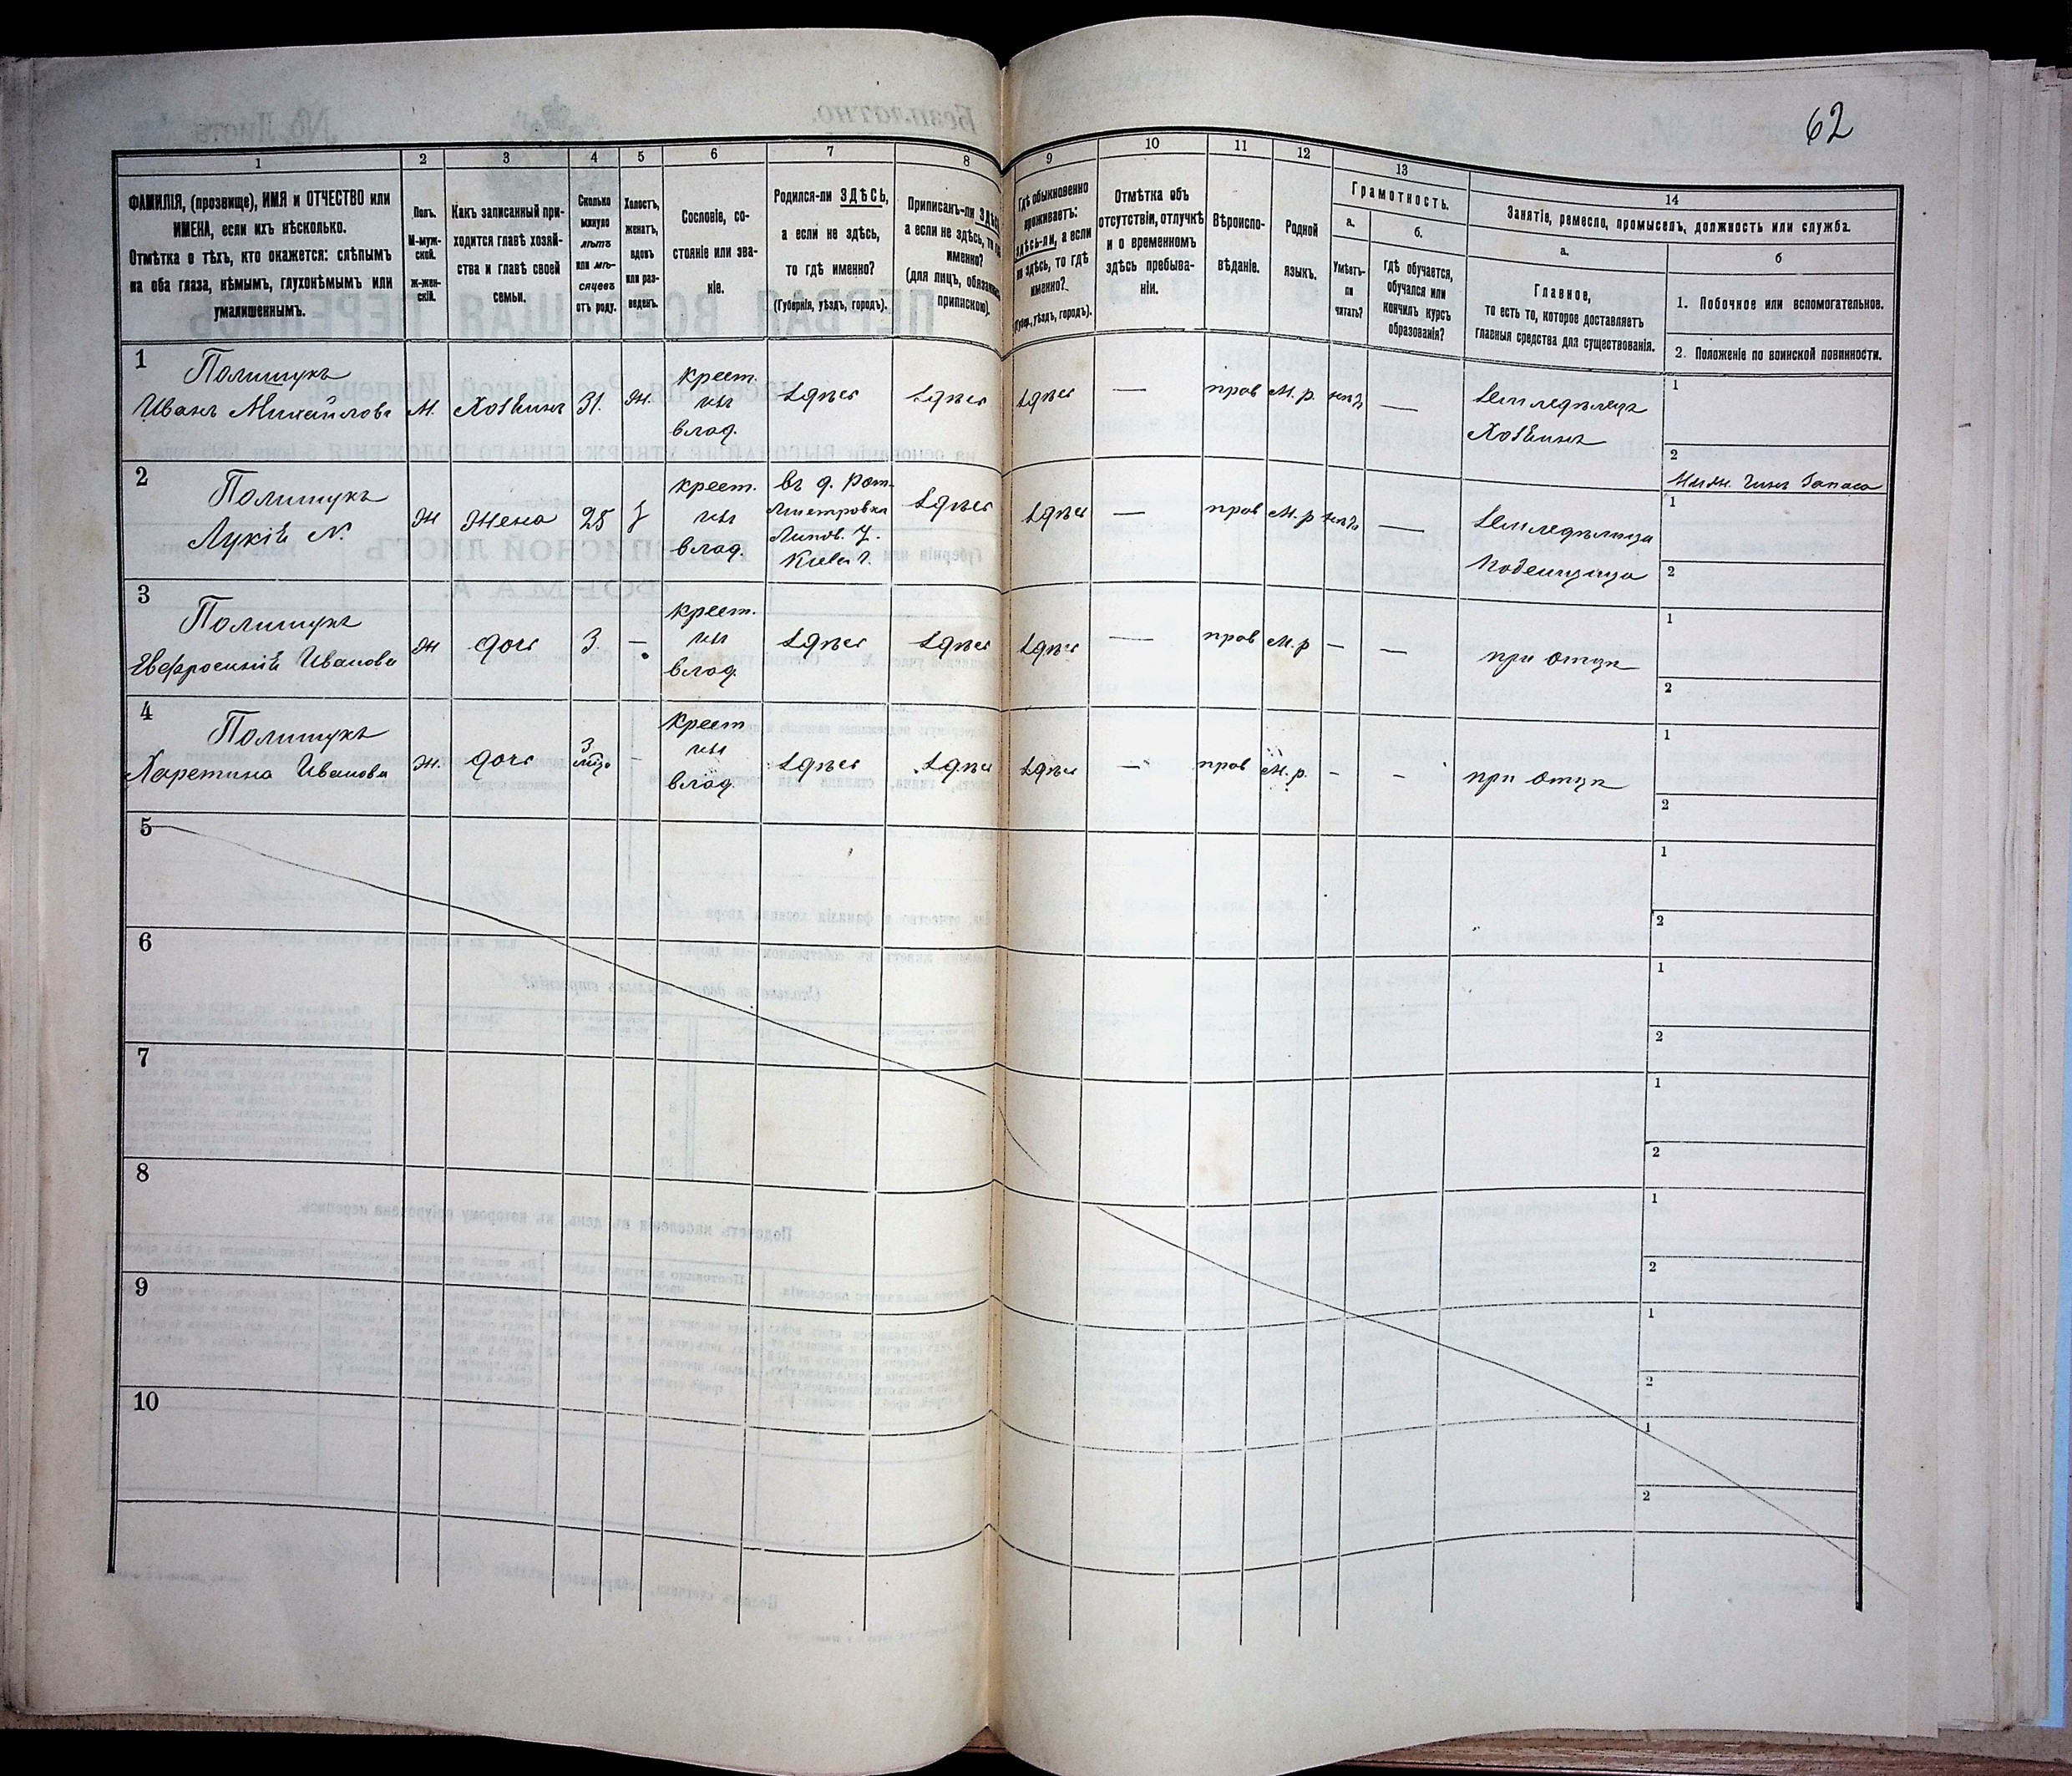 62
1
2
3
4
5
6
7
8
9
10
11
12
13
14
ФАМИЛІЯ, (прозвище), ИМЯ и ОТЧЕСТВО или
ИМЕНА, если ихъ нѣсколько.
Отмѣтка о тѣхъ, кто окажется: слѣпымъ
на оба глаза, нѣмымъ, глухонѣмымъ или
умалишеннымъ.
Полъ.
М-муж-
ской.
Ж-жен-
скій.
Какъ записанный при-
ходится главѣ хозяй-
ства и главѣ своей
семьи.
Сколько
минуло
лѣтъ
или мѣ-
сяцевъ
отъ роду.
Холостъ,
женатъ,
вдовъ
или раз-
веденъ.
Сословіе, со-
стояніе или зва-
ніе.
Родился-ли ЗДѢСЬ,
а если не здѣсь,
то гдѣ именно?
(Губернія, уѣздъ, городъ).
Приписанъ-ли ЗДѢСЬ,
а если не здѣсь, то гдѣ
именно?
(для лицъ, обязанныхъ
припискою).
Гдѣ обыкновенно
проживаетъ:
здѣсь-ли, а если
не здѣсь, то гдѣ
именно?
(Губер., уѣздъ, городъ).
Отмѣтка объ
отсутствіи, отлучкѣ
и о временномъ
здѣсь пребыва-
ніи.
Вѣроиспо-
вѣданіе.
Родной
языкъ.
Грамотность.
а.
Умѣетъ-
ли
читать?
б.
гдѣ обучается,
обучался или
кончилъ курсъ
образованія?
Занятіе, ремесло, промыселъ, должность или служба.
а.
Главное,
то есть то, которое доставляетъ
главныя средства для существованія.
б
1. Побочное или вспомогательное.
2. Положеніе по воинской повинности.
1
Полищукъ
Иванъ Михайловъ
М.
Хозяинъ
31.
ж.
крест.
изъ
влад.
здѣсь
здѣсь
здѣсь
—
прав
М. р.
нѣтъ
—
Земледѣлецъ
Хозяинъ
1
2
Нижн. Чинъ Запаса
2
Полищукъ
Лукія N.
ж
Жена
25
з
крест.
изъ
влад.
въ д.
Липов. у.
Киев. г.
здѣсь
здѣсь
—
прав
М. р
нѣтъ
—
1
2
3
Полищукъ
Евфросинія Иванова
ж
дочь
3.
—
крест.
изъ
влад.
здѣсь
здѣсь
здѣсь
—
прав
М. р
—
—
при отцѣ
1
2
4
Полищукъ
Харетина Иванова
ж.
дочь
3
-
крест
изъ
влад.
здѣсь
здѣсь
здѣсь
—
прав
М. р.
-
-
при отцѣ
1
2
5
1
2
6
1
2
7
1
2
8
1
2
9
1
2
10
1
2